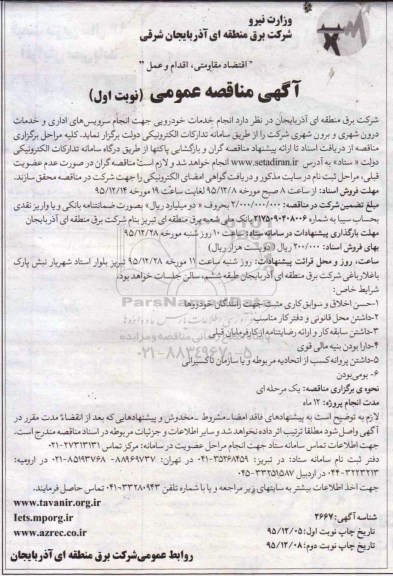 وزارت نیرو
شرکت برق منطقه ای آذربایجان شرقی
" اقتصاد مقاومتی، اقدام و عمل "
آگهی مناقصه عمومی (نوبت اول)
شرکت برق منطقه ای آذربایجان در نظر دارد انجام خدمات خودرویی جهت انجام سرویس‌های اداری و خدمات
درون شهری و برون شهری شرکت را از طریق سامانه تدارکات الکترونیکی دولت برگزار نماید. کلیه مراحل برگزاری
مناقصه از دریافت اسناد تا ارائه پیشنهاد مناقصه گران و بازگشایی پاکتها از طریق درگاه سامانه تدارکات الکترونیکی
دولت « ستاد» به آدرس www.setadiran.ir انجام خواهد شد و لازم است مناقصه گران در صورت عدم عضویت
قبلی، مراحل ثبت نام در سایت مذکور و دریافت گواهی امضای الکترونیکی را جهت شرکت در مناقصه محقق سازند.
مهلت فروش اسناد: از ساعت ۸ صبح مورخه ۹۵/۱۲/۸ لغایت ساعت ۱۹ مورخه ۹۵/۱۲/۱۴
مبلغ تضمین شرکت در مناقصه: ۲/۰۰۰/۰۰۰/۰۰۰ بحروف « دو میلیارد ریال» بصورت ضمانتنامه بانکی و یا واریز نقدی
بحساب سیبا به شماره ۲۱۷۵۰۹۰۲۰۸۰۰۶ بانک ملی شعبه برق منطقه ای تبریز بنام شرکت برق منطقه ای آذربایجان
مهلت بارگذاری پیشنهادات در سامانه ستاد: ساعت ۱۰ روز شنبه مورخه ۹۵/۱۲/۲۸
بهای فروش اسناد: ۲۰۰/۰۰۰ ریال (دویست هزار ریال)
ساعت، روز و محل قرائت پیشنهادات: روز شنبه ساعت ۱۱ مورخه ۹۵/۱۲/۲۸ تبریز بلوار استاد شهریار نبش پارک
باغلارباغی شرکت برق منطقه ای آذربایجان طبقه ششم، سالن جلسات خواهد بود.
شرایط خاص:
۱-حسن اخلاق و سوابق کاری مثبت جهت رانندگان خودروها
۲-داشتن محل قانونی و دفتر کار مناسب
۳-داشتن سابقه کار و ارائه رضایتنامه از کارفرمایان قبلی
۴-دارا بودن بنیه مالی قوی
۵-داشتن پروانه کسب از اتحادیه مربوطه و یا سازمان تاکسیرانی
۶- بومی بودن
نحوه ی برگزاری مناقصه: یک مرحله ای
مدت انجام پروژه: ۱۲ ماه
لازم به توضیح است به پیشنهادهای فاقد امضاء، مشروط، مخدوش و پیشنهادهایی که بعد از انقضاء مدت مقرر در
آگهی واصل شود مطلقا ترتیب اثر داده نخواهد شد و سایر اطلاعات و جزئیات مربوطه در اسناد مناقصه مندرج است.
جهت اطلاعات تماس سامانه ستاد جهت انجام مراحل عضویت در سامانه: مرکز تماس: ۲۷۳۱۳۱۳۱-۰۲۱
دفتر ثبت نام ستاد: در تبریز: ۳۵۲۶۸۴۵۹-۰۴۱ در تهران: ۸۸۹۶۹۷۳۷- ۸۵۱۹۳۷۶۸-۰۲۱ در ارومیه:
۳۲۲۳۲۱۳-۰۴۴ در اردبیل ۳۳۲۵۱۵۸۷-۰۴۵
جهت اخذ اطلاعات بیشتر به سایتهای زیر مراجعه و یا با شماره تلفن ۳۳۲۸۰۹۴۳-۰۴۱ تماس حاصل فرمایند.
www.tavanir.org.ir
Iets.mporg.ir
www.azrec.co.ir
شناسه آگهی: ۲۶۶۷
تاریخ چاپ نوبت اول: ۹۵/۱۲/۰۵
تاریخ چاپ نوبت دوم: ۹۵/۱۲/۰۸
روابط عمومی شرکت برق منطقه ای آذربایجان